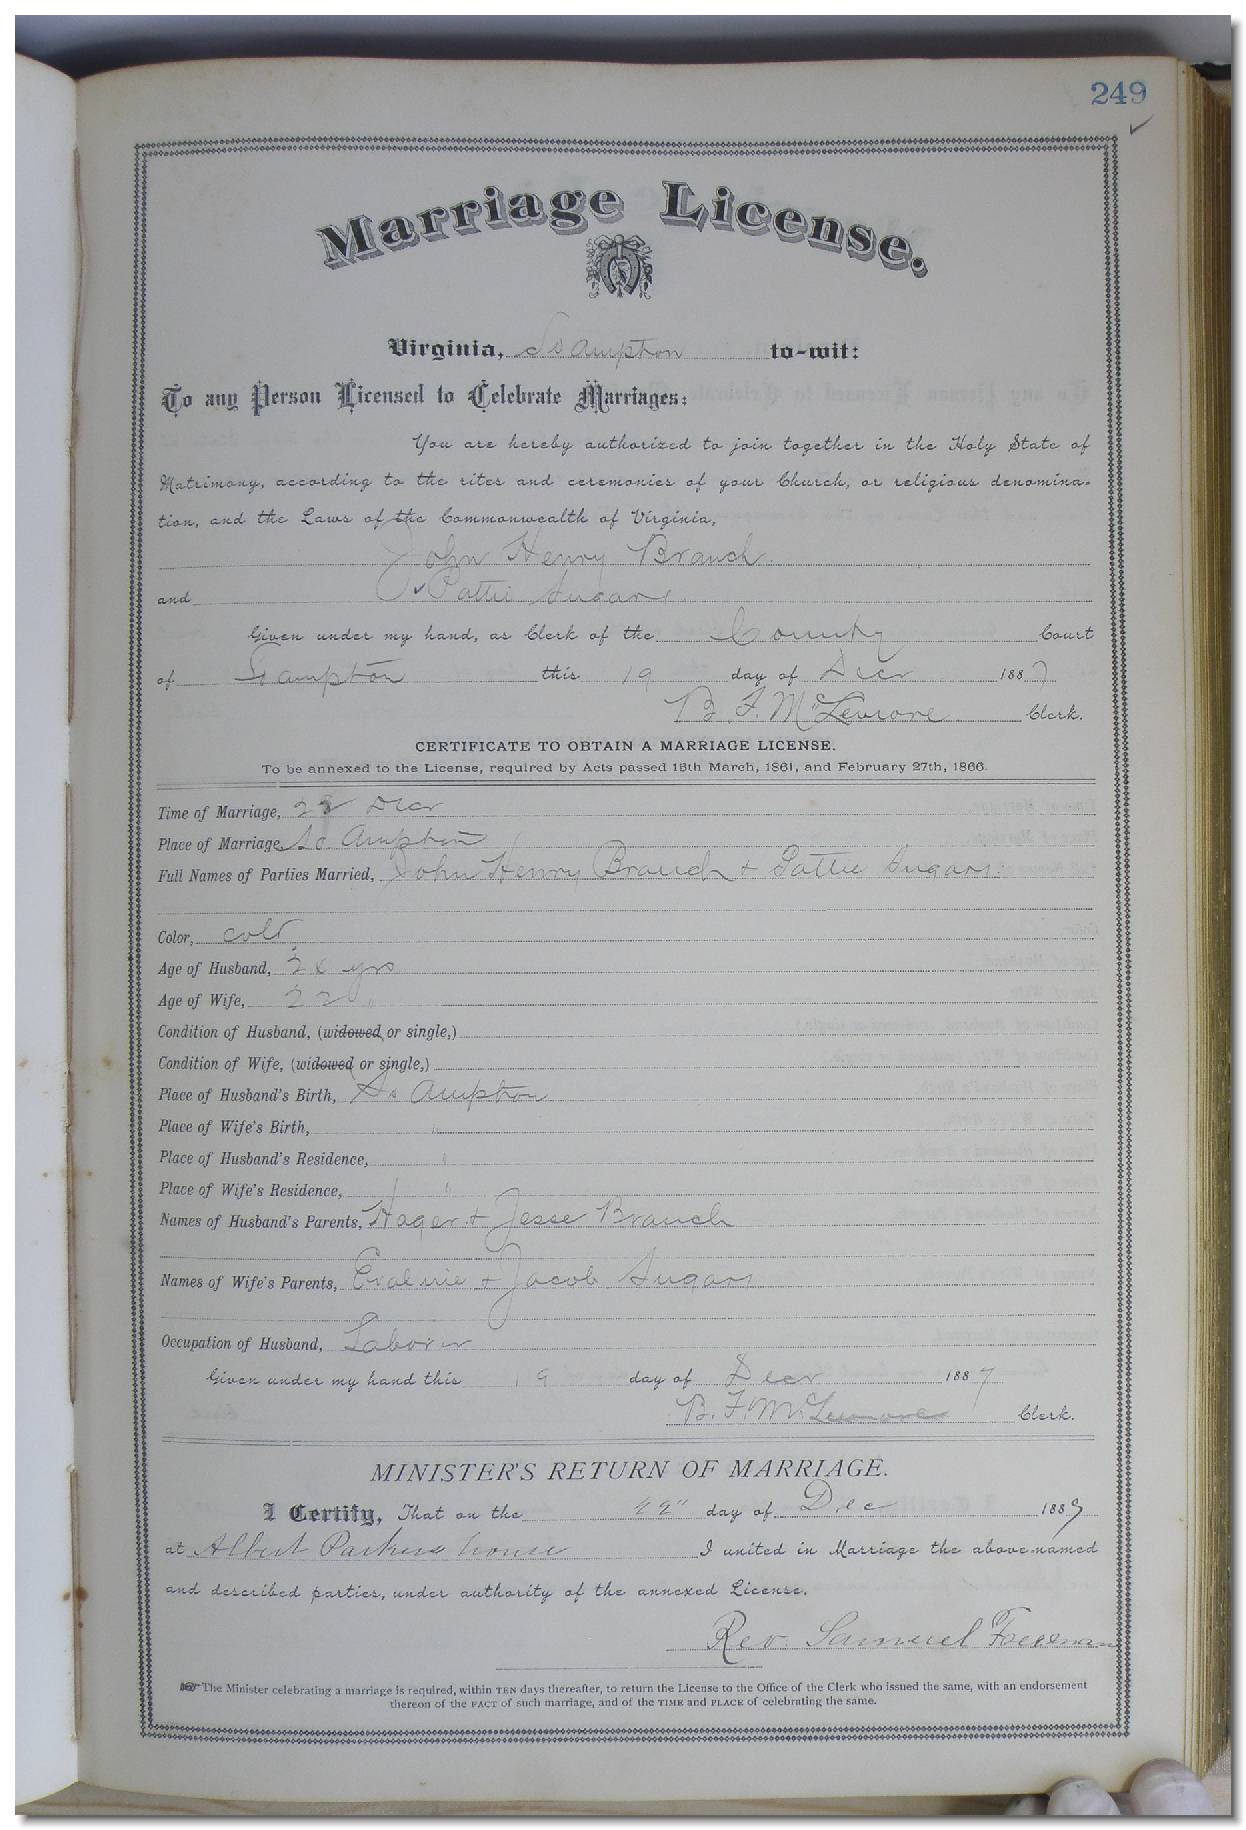 249
Marriage License.
Virginia, So ampton to-wit:
To any Person Licensed to Celebrate Marriages:
You are hereby authorized to join together in the Holy State of
Matrimony, according to the rites and ceremonies of your Church, or religious denomina-
tion, and the Laws of the Commonwealth of Virginia,
John Henry Branch
and Pattie Sugars
Given under my hand, as Clerk of the County Court
of So ampton this 19 day of Decr 1887
B. F. McLemore Clerk.
CERTIFICATE TO OBTAIN A MARRIAGE LICENSE.
To be annexed to the License, required by Acts passed 15th March, 1861, and February 27th, 1866.
Time of Marriage, Decr
Place of Marriage, So Ampton
Full Names of Parties Married, John Henry Branch + Pattie Sugars
Color, cold
Age of Husband, yrs
Age of Wife, 22 "
Condition of Husband, (widowed or single,)
Condition of Wife, (widowed or single,)
Place of Husband's Birth, So Ampton
Place of Wife's Birth, "
Place of Husband's Residence, "
Place of Wife's Residence, "
Names of Husband's Parents, Hager + Jesse Branch
Names of Wife's Parents, Evaline + Jacob Sugars
Occupation of Husband, Laborer
Given under my hand this 19 day of Decr 1887
B. F. McLemore Clerk.
MINISTER'S RETURN OF MARRIAGE.
I Certify, That on the day of Dec 1887
at Albert Parkers house I united in Marriage the above-named
and described parties, under authority of the annexed License.
Rev. Samuel Freeman
The Minister celebrating a marriage is required, within TEN days thereafter, to return the License to the Office of the Clerk who issued the same, with an endorsement
thereon of the FACT of such marriage, and of the TIME and PLACE of celebrating the same.